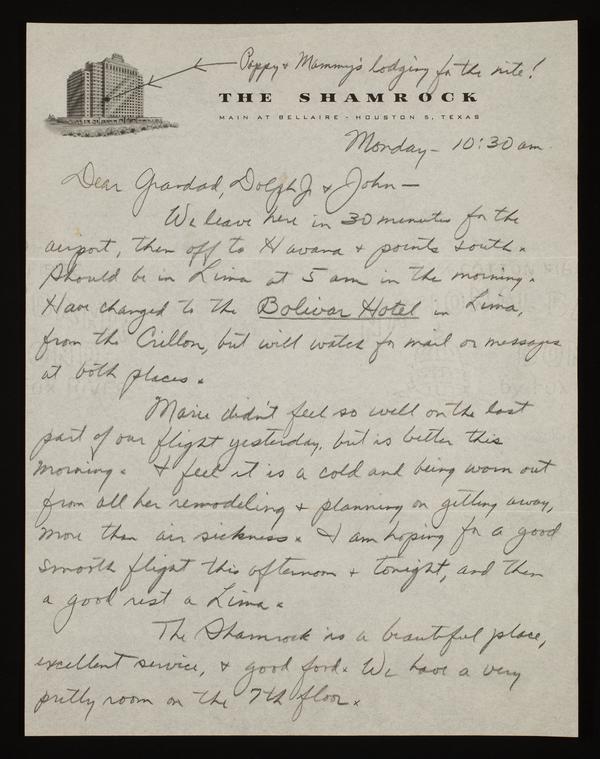 Poppy & Mammy's lodging for the nite!
THE SHAMROCK
MAIN AT BELLAIRE - HOUSTON 5, TEXAS
Monday - 10:30 am.
Dear Grandad, Dolph Jr & John —
We leave here in 30 minutes for the
airport, then off to Havana & points south.
Should be in Lima at 5 am in the morning.
Have changed to the Bolivar Hotel in Lima,
from the Crillon, but will watch for mail or messages
at both places.
Marie didn't feel so well on the last
part of our flight yesterday, but is better this
morning. I feel it is a cold and being worn out
from all her remodeling & planning on getting away,
more than air sickness. I am hoping for a good
smooth flight this afternoon & tonight, and then
a good rest a Lima.
The Shamrock is a beautiful place,
excellent service, & good food. We have a very
pretty room on the 7th floor.